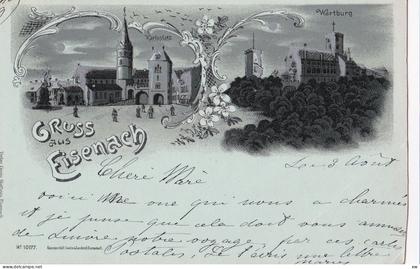 Karlsplatz
Wartburg
Gruss
aus
Eisenach
Le 3 Août
Cheri Mère
voici une vue qui nous a charmés
et je pense que cela doit vous amuser
de suivre notre voyage par ces cartes
postales, Je
une lettre
No 10177.